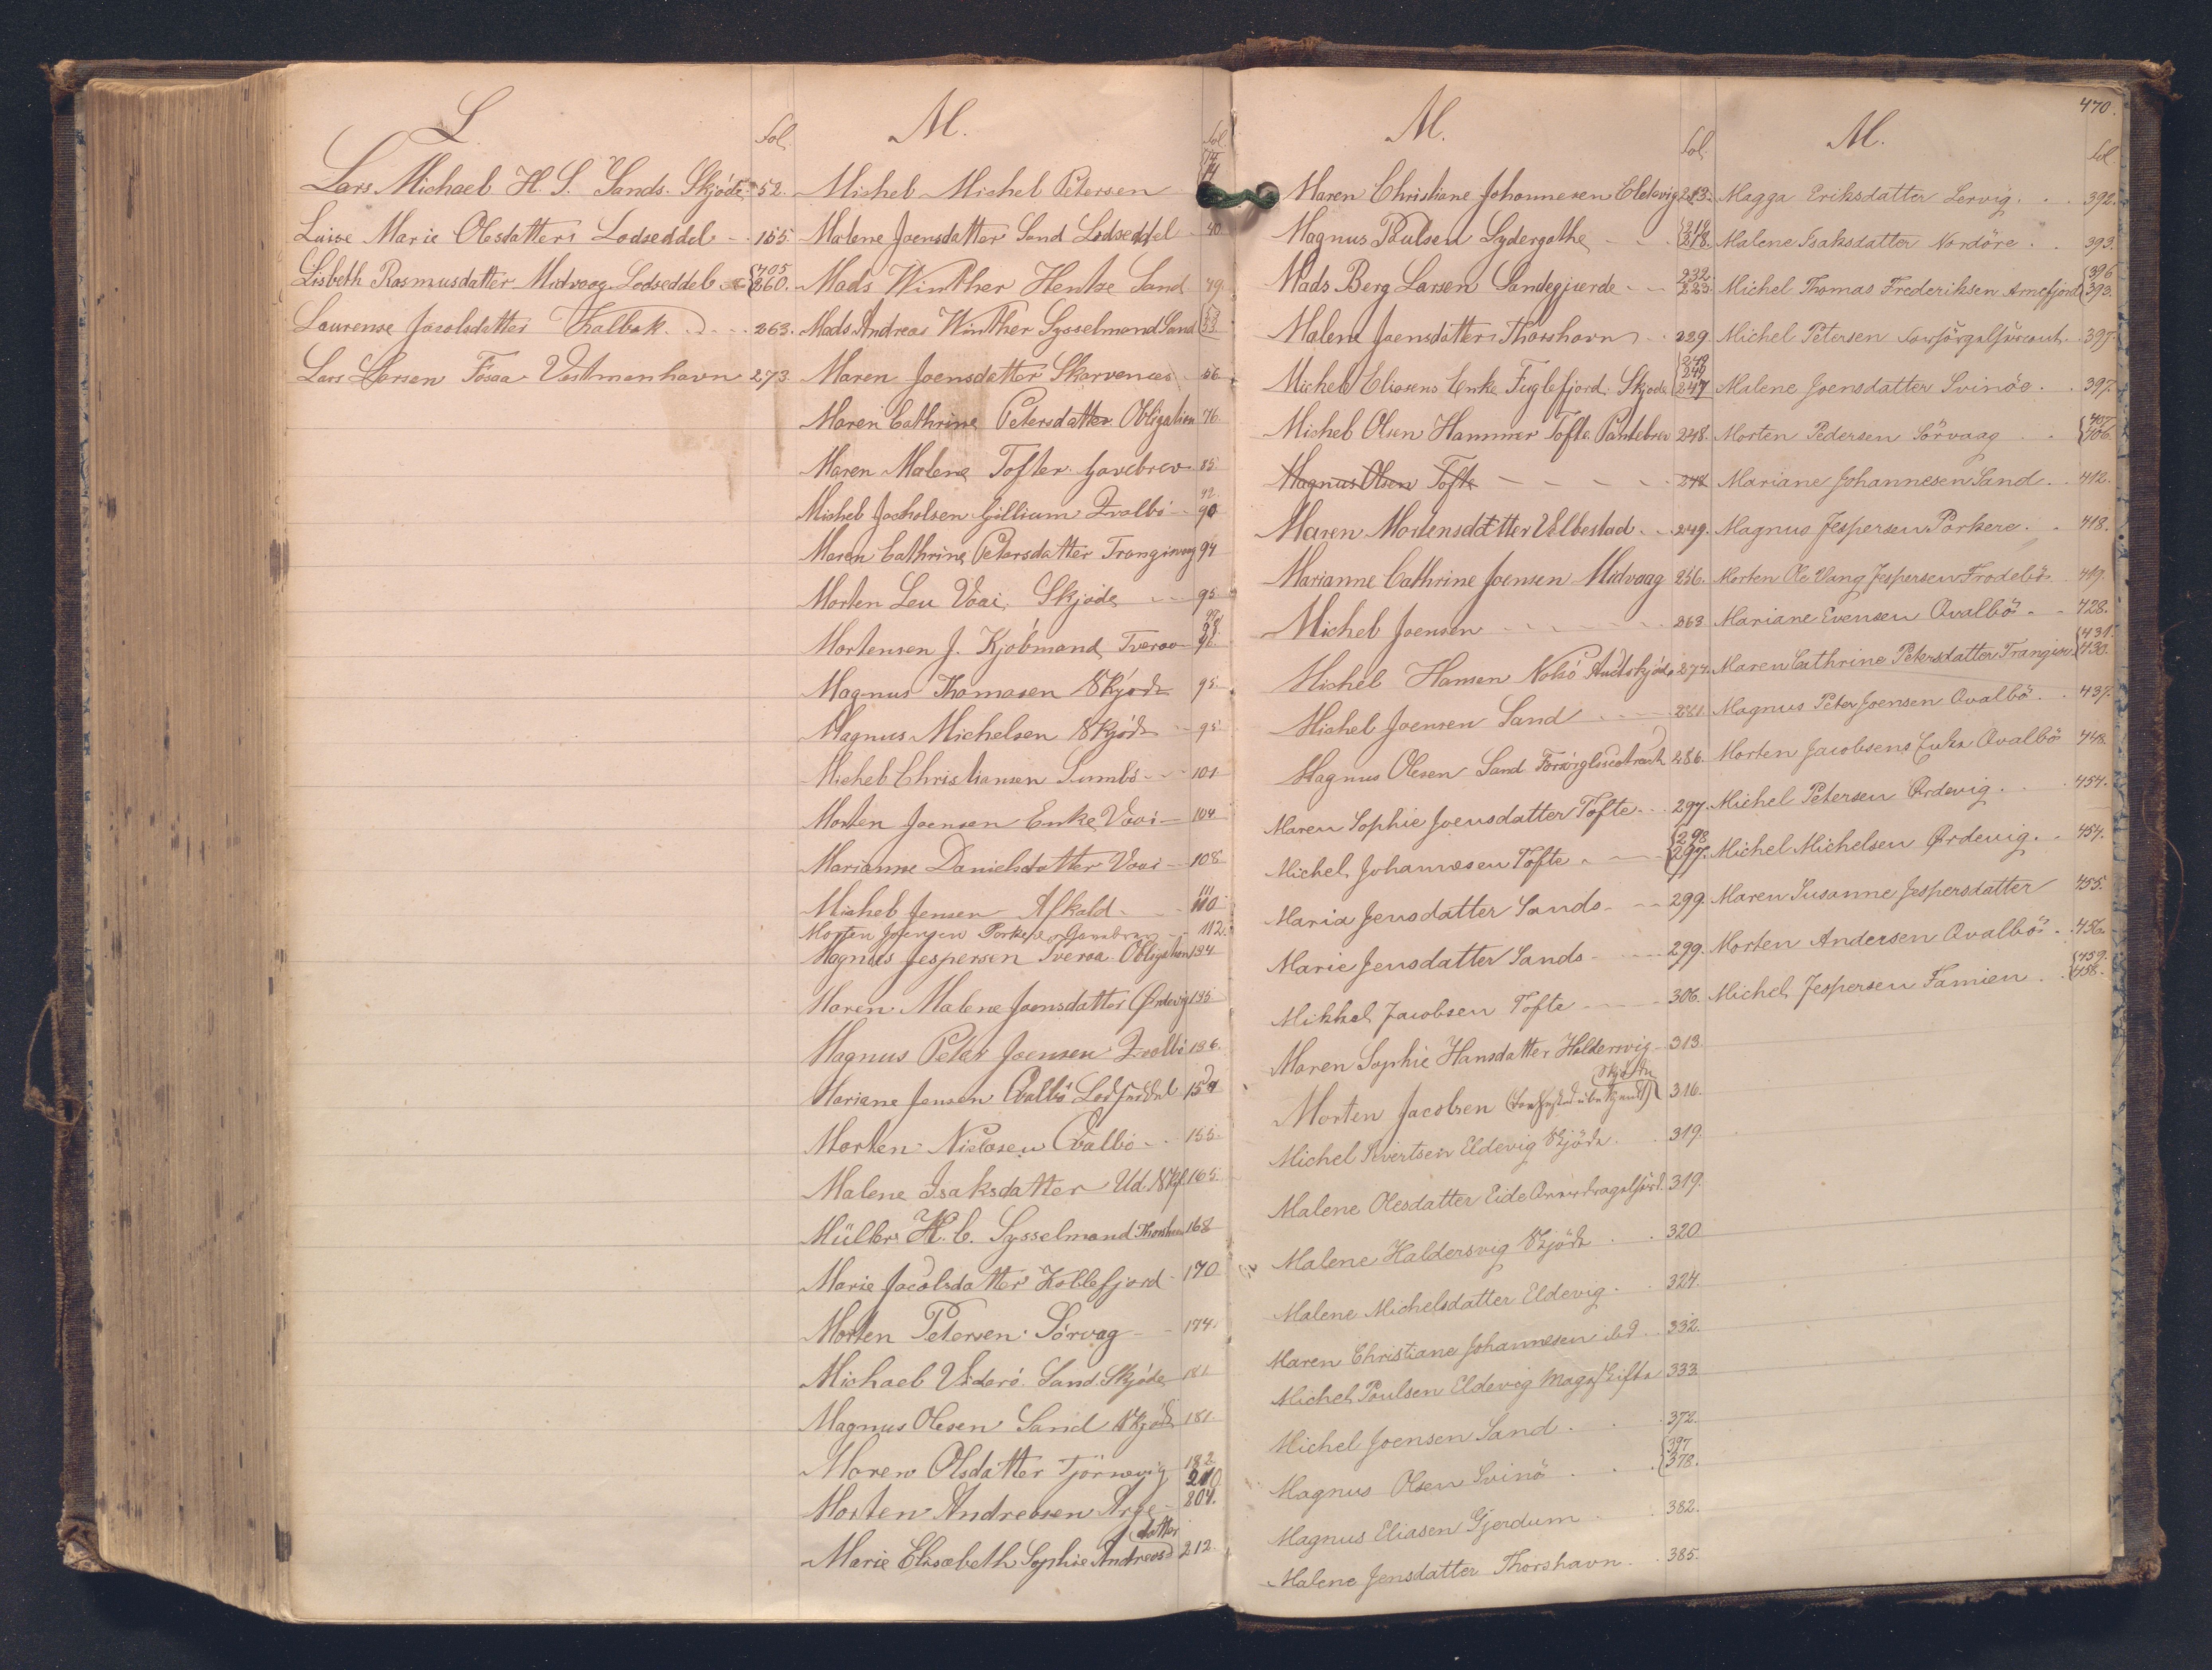 L.
Fol.
Lars Michael H. S. Sands. Skjöde 52.
Luise Marie Olesdatter Lodseddel - 155.
Lisbeth Rasmusdatter Midvaag Lodseddel {405 260.
Laurense Jacobsdatter Kalbak 263.
Lars Larsen Fosaa Vestmanhavn 273
M.
Fol.
Michel Michel Petersen 14
Malene Joensdatter Sand Lodseddel 40
Mads Winther Hentze Sand 49.
Mads Andreas Winther Sysselmand Sand 53
Maren Joensdatter Skarvenæs 56
Maren Cathrine Petersdatter Obligation 76.
Maren Malene Tofter Gavebrev 85
Michel Jacobsen Gillium Qvalbö 92. 90
Maren Cathrine Petersdatter Trangisvaag 94
Morten Leu Vaai, Skjøde 95.
Mortensen J. Kjöbmand, Tveraa 98.
Magnus Thomasen Skjøde 95.
Magnus Michelsen Skjöde 95
Michel Christiansen Sumbö 101
Morten Joensen Enke, Vaai 104
Marianne Danielsdatter Vaai 108
Michel Jensen Afkald 111 110
Morten Joensen Porkere Gavebrev 112.
Magnus Jespersen Tveraa Obligation 134
Maren Malene Joensdatter Ørdevig 135
Magnus Peter Joensen Qvalbö 136.
Mariane Jensen Qvalbö Lodseddel 154
Morten Nielsen Qvalbö 155.
Malene Isaksdatter Ud. Skj. 165.
Müller H. C. Sysselmand Thorshavn 168
Marie Jacobsdatter Kollefjord 170
Morten Petersen Sörvag 174.
Michael Viderö. Sand. Skjöde 181
Magnus Olesen Sand Skjöde 181.
Maren Olsdatter Tjörnevig 182
Morten Andreasen Arge 210. 204.
Marie Elisabeth Sophie Andreasdatter 212.
M.
Fol.
Maren Christiane Johannesen Eldevig 213.
Magnus Poulsen Sydergøthe {219 218.
Mads Berg Larsen Sandegjerde 232. 223.
Malene Joensdatter Thorshavn 229.
Michel Eliasens Enke Fuglefjord. Skjøde {249 247
Michel Olsen Hammer Tofte. Pantebrev 248.
Magnus Olsen Tofte 248
Maren Mortensdatter Velbestad 249.
Marianne Cathrine Joensen Midvaag 256.
Michel Joensen 263
Michel Hansen Nolsö Auctskjøde 274.
Michel Joensen Sand 281
Magnus Olesen Sand 286.
Maren Sophie Joensdatter Tofte 297.
Michel Johannesen Tofte {298 297.
Maria Jensdatter Sands 299.
Marie Jensdatter Sands 299.
Mikkel Jacobsen Tofte 306.
Maren Sophie Hansdatter Haldersvig 313.
Morten Jacobsen 316.
Michel Sivertsen Eldevig Skjöde 319.
Malene Olesdatter Eide 319.
Malene Haldersvig Skjöde 320
Malene Michelsdatter Eldevig 324.
Maren Christiane Johannesen ibd 332.
Michel Poulsen Eldevig Mageskifte 333
Michel Joensen Sand 372.
Magnus Olsen Svinö {397 378.
Magnus Eliasen Gjerdum 382.
Malene Jensdatter Thorshavn 385.
470.
M.
Fol
Magga Eriksdatter Lervig 392.
Malene Isaksdatter Nordöre 393.
Michel Thomas Frederiksen Arnefjord {396 393.
Michel Petersen 397.
Malene Joensdatter Svinöe 397.
Morten Pedersen Sörvaag {407 406.
Mariane Johannesen Sand 412.
Magnus Jespersen Porkere 418.
Morten Ole Vang Jespersen Frodebö 419.
Mariane Evensen Qvalbö 428.
Maren Cathrine Petersdatter Trangisv {431. 430.
Magnus Peter Joensen Qvalbö 437.
Morten Jacobsens Enke Qvalbö 448.
Michel Petersen Ørdevig 454.
Michel Michelsen Ørdevig 454.
Maren Susanne Jespersdatter 455.
Morten Andersen Qvalbö 456.
Michel Jespersen Famien {459. 458.